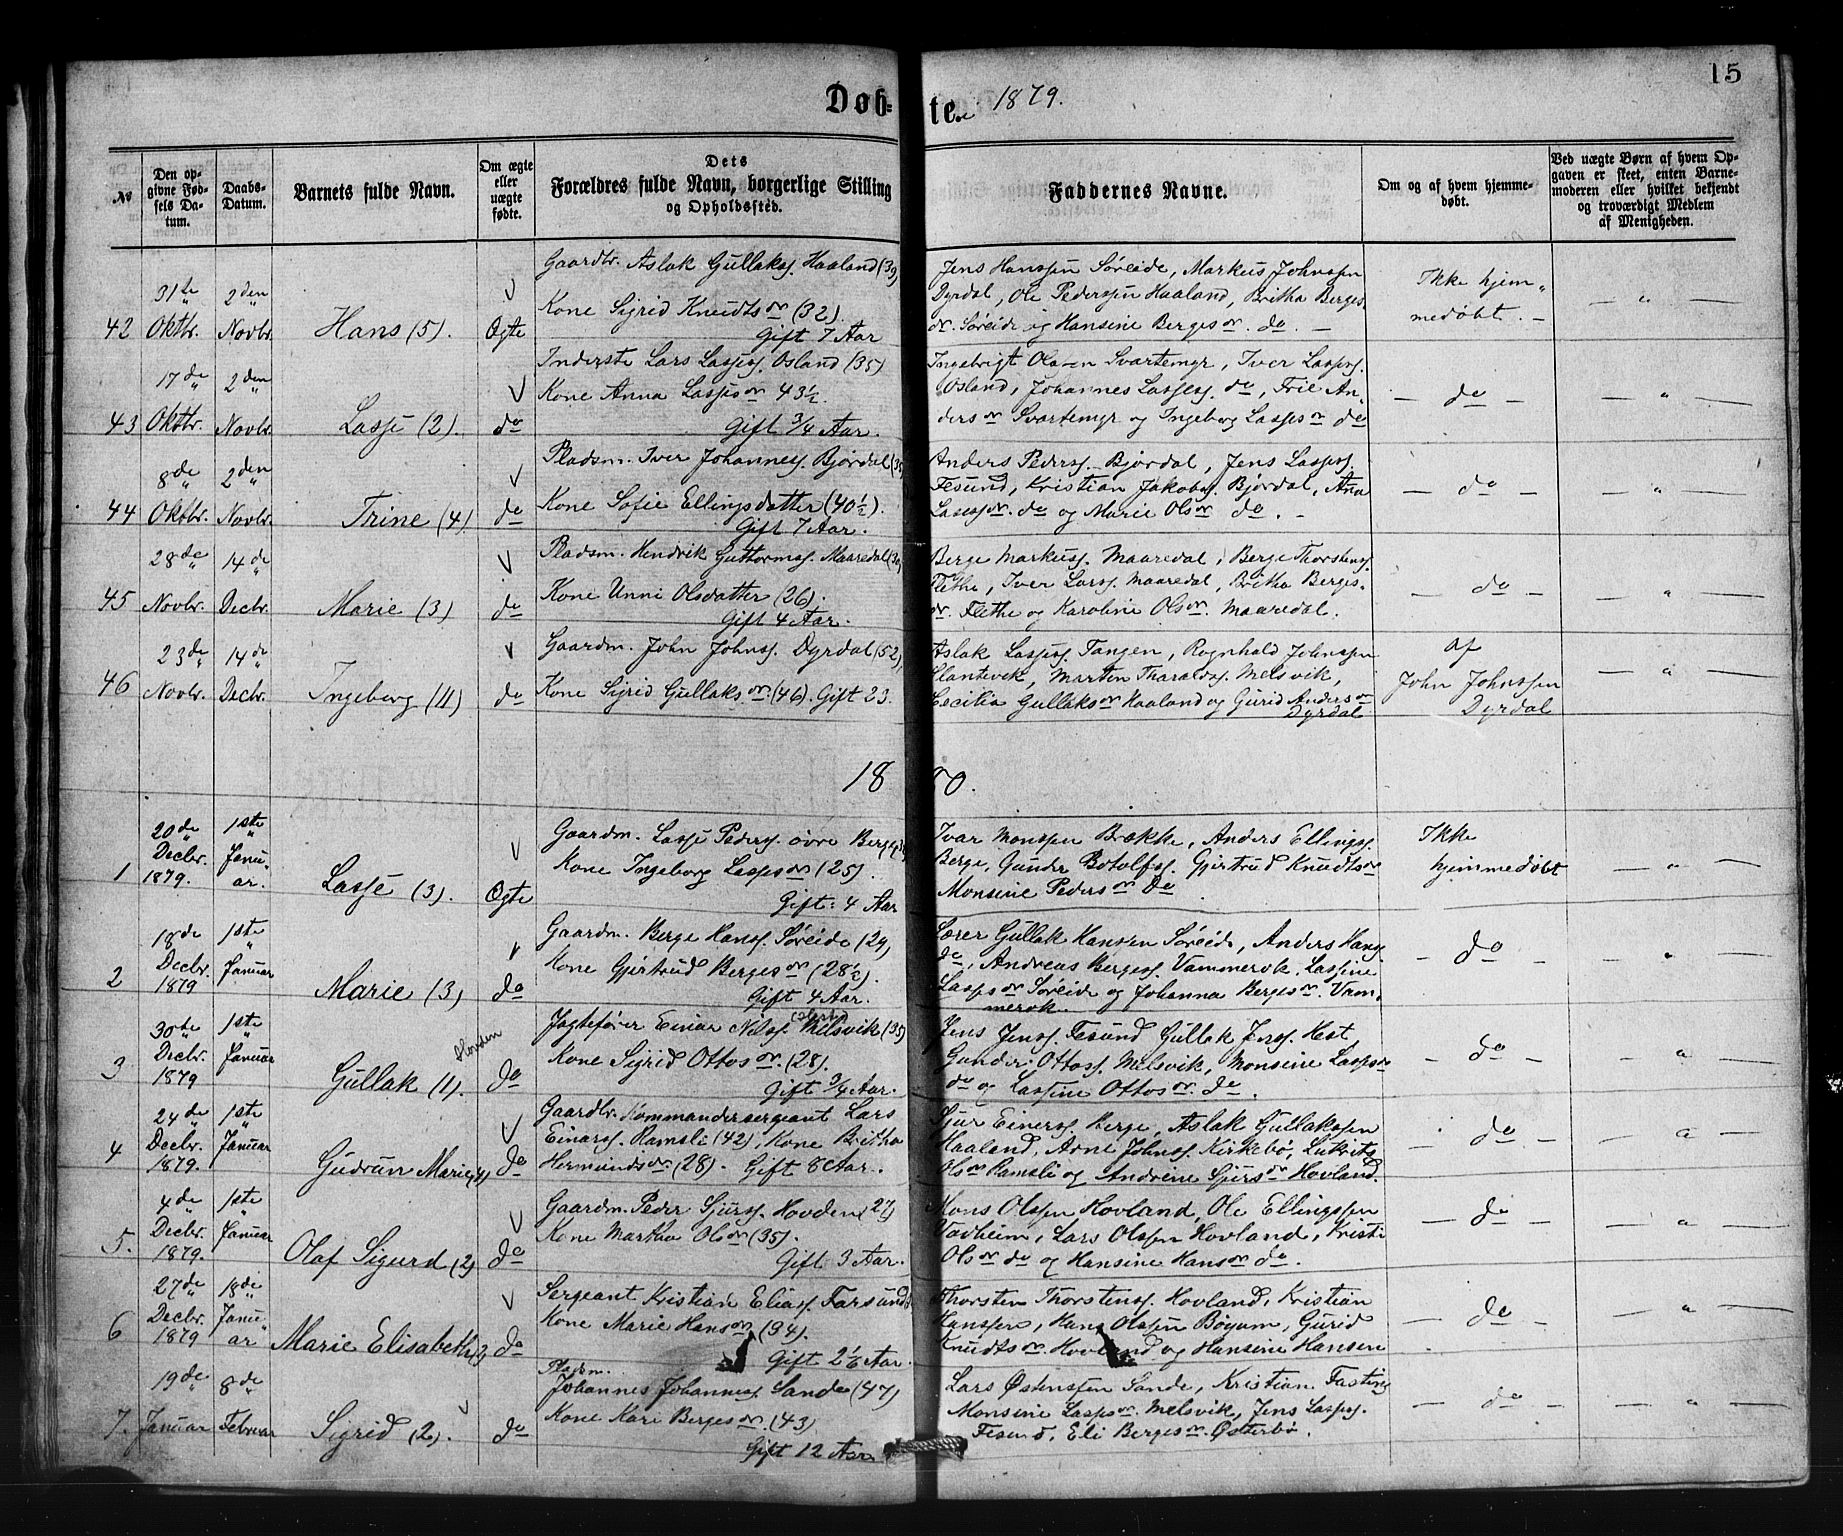 15
Døb- te. 1879.
No
Den opgivne Fødsels Datum.
Daabs-Datum.
Barnets fulde Navn.
Om ægte eller uægte fødte.
Dets Forældres fulde Navn, borgerlige Stilling og Opholdssted.
Faddernes Navne.
Om og af hvem hjemmedøbt.
Ved uægte Børn af hvem Opgaven er skeet, enten Barnemoderen eller hvilket bekjendt og troværdigt Medlem af Menigheden.
42 31te Oktbr. 2den Novbr. Hans (5). Ogte
Gaardbr. Aslak Gullakss. Haaland (39)
Kone Sigrid Knudtsdr (32)
Gift 7 Aar
Jens Hanssen Søreide, Markus Johnssen
Dyrdal, Ole Pederssen Haaland, Britha Berges
dr. Søreide og Hansine Bergesdr. do. —
Ikke hjem„
medøbt. —
— „ —
43 17de Oktbr. 2den Novbr. Lasse (2). do
Inderste Lars Lasses. Osland (35)
Kone Anna Lassesdr 43½
Gift ¾ Aar.
Ingebrigt Olsen Svartemyr, Iver Lasses.
Osland, Johannes Lasses. do, Frie An-
dersdr Svartemyr og Ingeborg Lassesdr do
— do —
— „ —
44 8de Oktbr. 2den Novbr. Trine (4) do
Pladsm. Iver Johanness. Bjordal
Kone Sofie Ellingsdatter (40½).
Gift 7 Aar.
Anders Peders. Bjordal, Jens Lasses.
Fesund, Kristian Jakobs. Bjordal, Ana
Lassesdr. do og Marie Olsdr do. —
— do —
— „ —
45 28de Novbr. 14de Decbr. Marie (3) do
Pladsm. Hendrik Guttormss. Maaredal
Kone Unni Olsdatter (26).
Gift 4 Aar.
Berge Markuss. Maaredal, Berge Thorstens.
Flethe, Iver Larss. Maaredal, Britha Berges-
dr. Flethe og Karoline Olsdr. Maaredal.
— do —
— „ —
46 23de Novbr. 14de Decbr. Ingeborg (11) do
Gaardm. John Johns. Dyrdal (52)
Kone Sigrid Gullaksdr. (46). Gift 23.
Aslak Lasses. Tangen, Rognhald Johnssen
Slantevik, Marten Tharalds. Melsvik,
Cecilia Gullaksdr Haaland og Gurid Andersdr
Dyrdal
af
John Johnssen
Dyrdal
— „ —
1880.
1 20de Decbr. 1879. 1ste Januar. Lasse (3). Ogte
Gaardm. Lasse Peders. øvre Berge
Kone Ingeborg Lassesdr (25).
Gift: 4 Aar
Ivar Monssen Brække, Anders Ellings.
Berge, Gunder Botolfs. Gjertrud Knudtsdr
Monsine Pedersdr do
Ikke
hjemmedøbt
— „ —
2 18de Decbr. 1879 1ste Januar Marie (3) do
Gaardm. Berge Hans. Søreide (29)
Kone Gjertrud Bergesdr (28½).
Gift 4 Aar.
Lærer Gullak Hansen Søreide, Anders Hans.
do, Andreas Berges. Vammerok. Lassine
Lassesdr Søreide og Johanna Bergesdr. Vam-
merok.
— do —
— „ —
3 30te Decbr. 1879 1ste Januar Gullak (1). do
Jagtefører Einar Nils. Melsvik (35)
Kone Sigrid Ottosdr. (28).
Gift ¾ Aar.
Jens Jenss. Fesund Gullak Jenss. Hest,
Gunder Ottos. Melsvik, Monsine Lassesdr
do og Lassine Ottosdr. do.
— do —
— „ —
4 24de Decbr. 1879. 1ste Januar Gudrun Marie (4) do
Gaardbr. Kommandersergeant Lars
Einarss. Ramsli (42), Kone Britha
Hermundsdr. (28). Gift 8 Aar.
Sjur Einers. Berge, Aslak Gullakssen
Haaland, Arne Johns. Kirkebø, Lukrits
Olsdr Ramsli og Andrine Sjursdr Hovland.
— do —
— „ —
5. 4de Decbr. 1879. 1ste Januar Olaf Sigurd (2) do
Gaardm. Peder Sjurs. Hovden (27)
Kone Martha Olsdr (35).
Gift 3 Aar.
Mons Olssen Hovland, Ole Ellingssen
Vadheim, Lars Olssen Hovland, Kristi
Olsdr do og Hansine Hansdr do.
— do —
— „ —
6 27de Decbr. 1879 18de Januar Marie Elisabeth (2) do
Sergeant Kristian Elias. Farsund
Kone Marie Hansdr (34).
Gift 2½ Aar.
Thorsten Thorstens. Hovland, Kristian
Hanssen, Hans Olssen Bøyum, Gurid
Knudtsdr. Hovland og Hansine Hansen
— do —
— „ —
7. 19de Januar 8de Februar Sigrid (2). do
Pladsm.
Johannes Johanness. Sande (47)
Kone Kari Bergesdr. (43)
Gift 12 Aar
Lars Østenssen Sande, Kristian Fasting
Monsine Lassesdr. Melsvik, Jens Lasses.
Fesund, Eli Bergesdr Østerbø.
— do —
— „ —